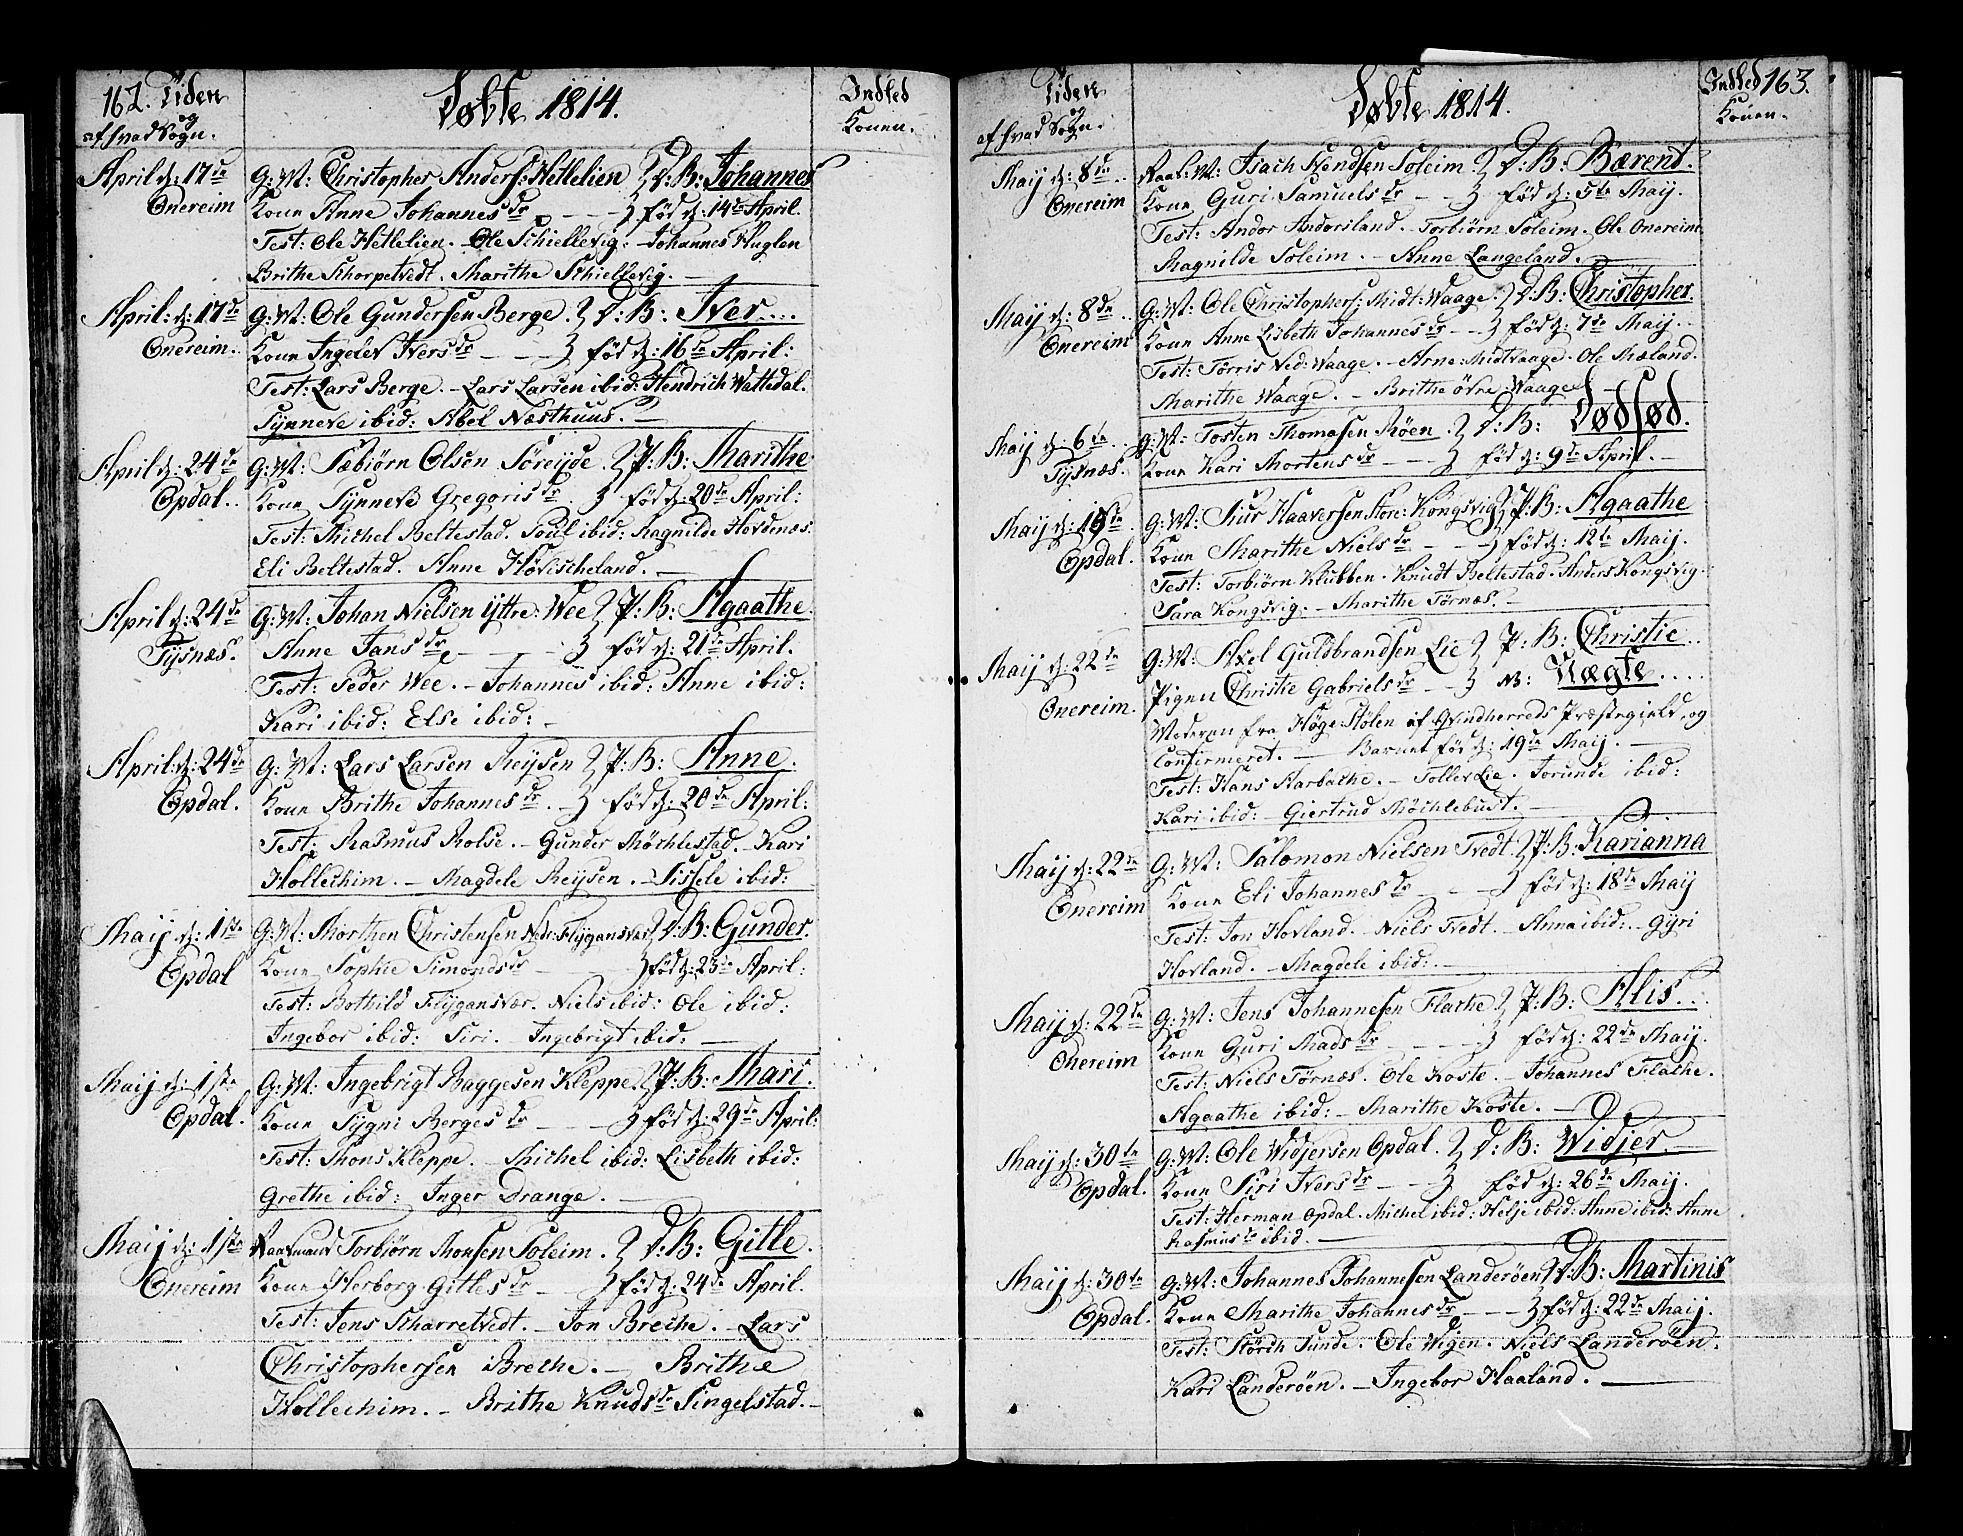 162. Tiden
og
af hvad Sogn.
Døbte 1814.
Indled
Konen.
April d: 17de
Onereim
G: M: Christopher Anders: Hettelien D: B: Johannes
Kone Anne Johannesdr - - - fød d: 14de April.
Test: Ole Hettelien. Ole Schiellevig. Johannes Huglen
Brithe Schorpetvedt. Marithe Schiellevig. -
April: d: 17de
Onereim.
G: M: Ole Gundersen Berge. D: B: Iver....
Kone Ingelev Iversdr - - - fød d: 16de April:
Test: Lars Berge. - Lars Larsen ibid: Hendrich Wattedal.
Synneve ibid: Abel Næsthuus. -
April d: 24de
Opdal.
G: M: Sæbiørn Olsen Søreijde P: B: Marithe
Kone Synneve Gregorisdr. fød d: 20de April:
Test: Michel Beltestad. Poul ibid: Ragnilde Hovdnæs.
Eli Beltestad. Anne Hovischeland. -
April d: 24de
Tysnæs.
G: M: Johan Nielsen Yttre: Wee P: B: Agaathe.
Anne Jansdr - - - fød d: 21de April.
Test: Peder Wee. - Johannes ibid: Anne ibid:
Kari ibid: Else ibid: -
April: d: 24de
Opdal.
G: M: Lars Larsen Reijsen P: B: Anne.
Kone Brithe Johannesdr. - fød d: 20de April:
Test: Rasmus Rolse. - Gunder Møchlestad. - Kari
Hollechim. - Magdele Reijsen. - Sissele ibid:
Maij d: 1ste
Opdal
G: M: Morthen Christensen Nedr: Flijgansvær D: B: Gunder.
Kone Sophie Simonsdr - - - fød d: 23de April:
Test: Bothild Flijgansvær. Niels ibid: Ole ibid:
Ingebor ibid: Siri. - Ingebrigt ibid: -
Maij d: 1ste
Opdal.
G: M: Ingebrigt Baggesen Kleppe. P: B: Mari.
Kone Sygni Bergesdr - - - fød d: 29de April:
Test: Mons Kleppe. - Michel ibid: Lisbeth ibid:
Grethe ibid: Inger Drange. -
Maij d: 1ste
Onereim
Raadmand Torbiørn Monsen Soleim. D: B: Gitle.
Kone Herborg Gitlesdr - fød d: 24de April.
Test: Jens Scharretvedt. - Jon Breche. - Lars
Christophersen Breche. - Brithe
Hollechim. - Brithe Knudsdr Singelstad. -
Tiden
og
af hvad Sogn.
Døbte 1814.
Indled 163.
Konen.
Maij d: 8de
Onereim
M: Isach Svendsen Soleim. D: B: Bærent.
Kone Guri Samuelsdr - - fød d: 5te Maij.
Test: Andor Andorsland. Torbiørn Soleim. Ole Onereim
Magnilde Soleim. - Anne Langeland.
Maij d: 8de
Onereim
G: M: Ole Christophers: Midt: Waage. D: B: Christopher.
Kone Anne Lisbeth Johannesdr - - fød d: 7de Maij.
Test: Torris Ned: Waage. - Arne Midtvaage. Ole Mæland.
Marithe Waage. - Brithe øvre: Waage.
Maij d: 6te
Tysnæs.
G: M: Tosten Thomasen Møen. D: B: Dødfød.
Kone Kari Mortensdr - - - fød d: 9de April. -
Maij d: 15de
Opdal.
G: M: Siur Haaversen Store: Kongsvig P: B: Agaathe
Kone Marithe Nielsdr - - - fød d: 12te Maij.
Test: Torbiørn Klubben. Knudt Beltestad. Anders Kongsvig.
Sara Kongsvig. - Marithe Tørnæs. -
Maij d: 22de
Onereim.
G: M: Axel Guldbrandsen Lie P: B: Christie.
Pigen Christie Gabrielsdr - - NB: Uægte....
Moderen fra Høge Stølen af Qvindherreds Præstegield, og
Confirmeret. - Barnet fød d: 19de Maij. -
Test: Hans Aarbache. - Tollev Lie. Jorunde ibid:
Kari ibid: - Giertrud Møchlebust. -
Maij d: 22de
Onereim
G: M: Salomon Nielsen Tvedt P: B: Karianna
Kone Eli Johannesdr - - - fød d: 18de Maij
Test: Jon Hovland. - Niels Tvedt. - Anna ibid: - Gyri
Hovland. - Magdele ibid: -
Maij d: 22de
Onereim
G: M: Jens Johannesen Flathe P: B: Alis.
Kone Guri Madsdr - - - fød d: 22de Maij.
Test: Niels Tørnæs. Ole Koste. - Johannes Flathe.
Agaathe ibid: - Marithe Koste. -
Maij d: 30te
Opdal.
G: M: Ole Widjersen Opdal. D: B: Widjer.
Kone Siri Iversdr - - - fød d: 26de Maij.
Test: Herman Opdal. Michel ibid: Helje ibid: Anne ibid: Anne
Rasmusdr ibid. -
Maij d: 30te
Opdal.
G: M: Johannes Johannesen Landerøen D: B: Martinis
Kone Marithe Johannesdr - - - fød d: 22de Maij.
Test: Størch Sunde. Ole Wigen. Niels Landerøen.
Kari Landerøen. - Ingebor Haaland. -